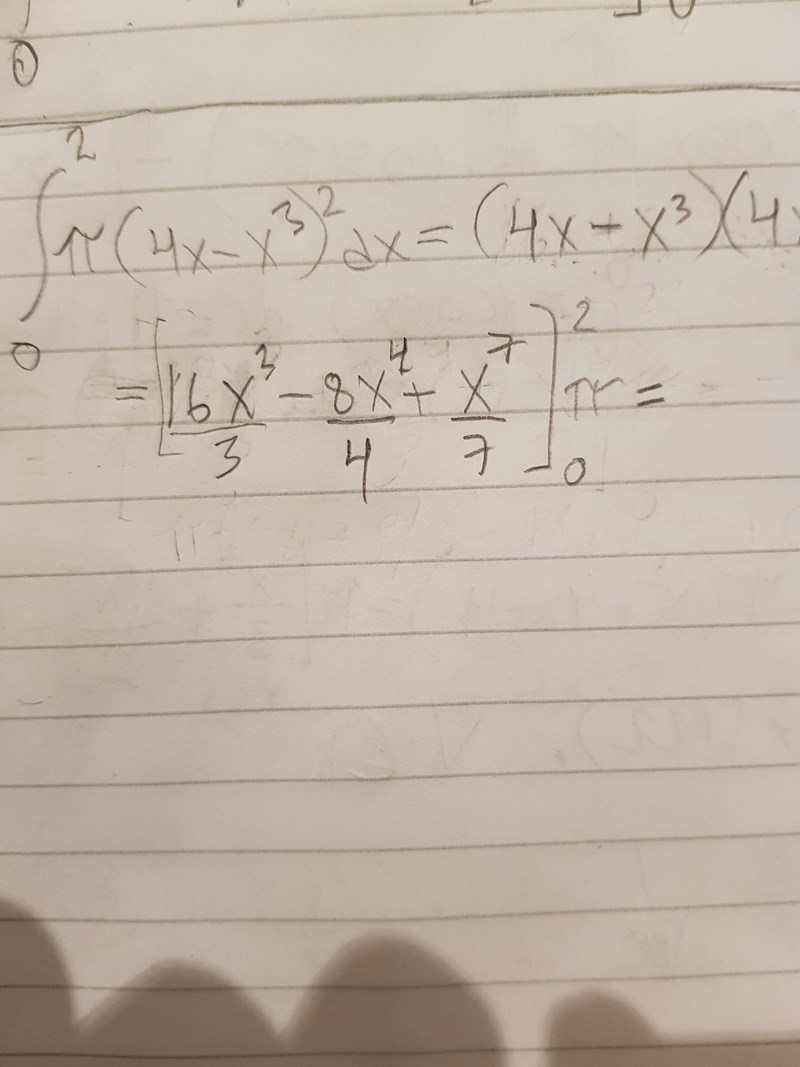 0
∫₀² π(4x-x³)²dx = (4x-x³)(4x
= [16x³/3 - 8x⁴/4 + x⁷/7]₀² π =